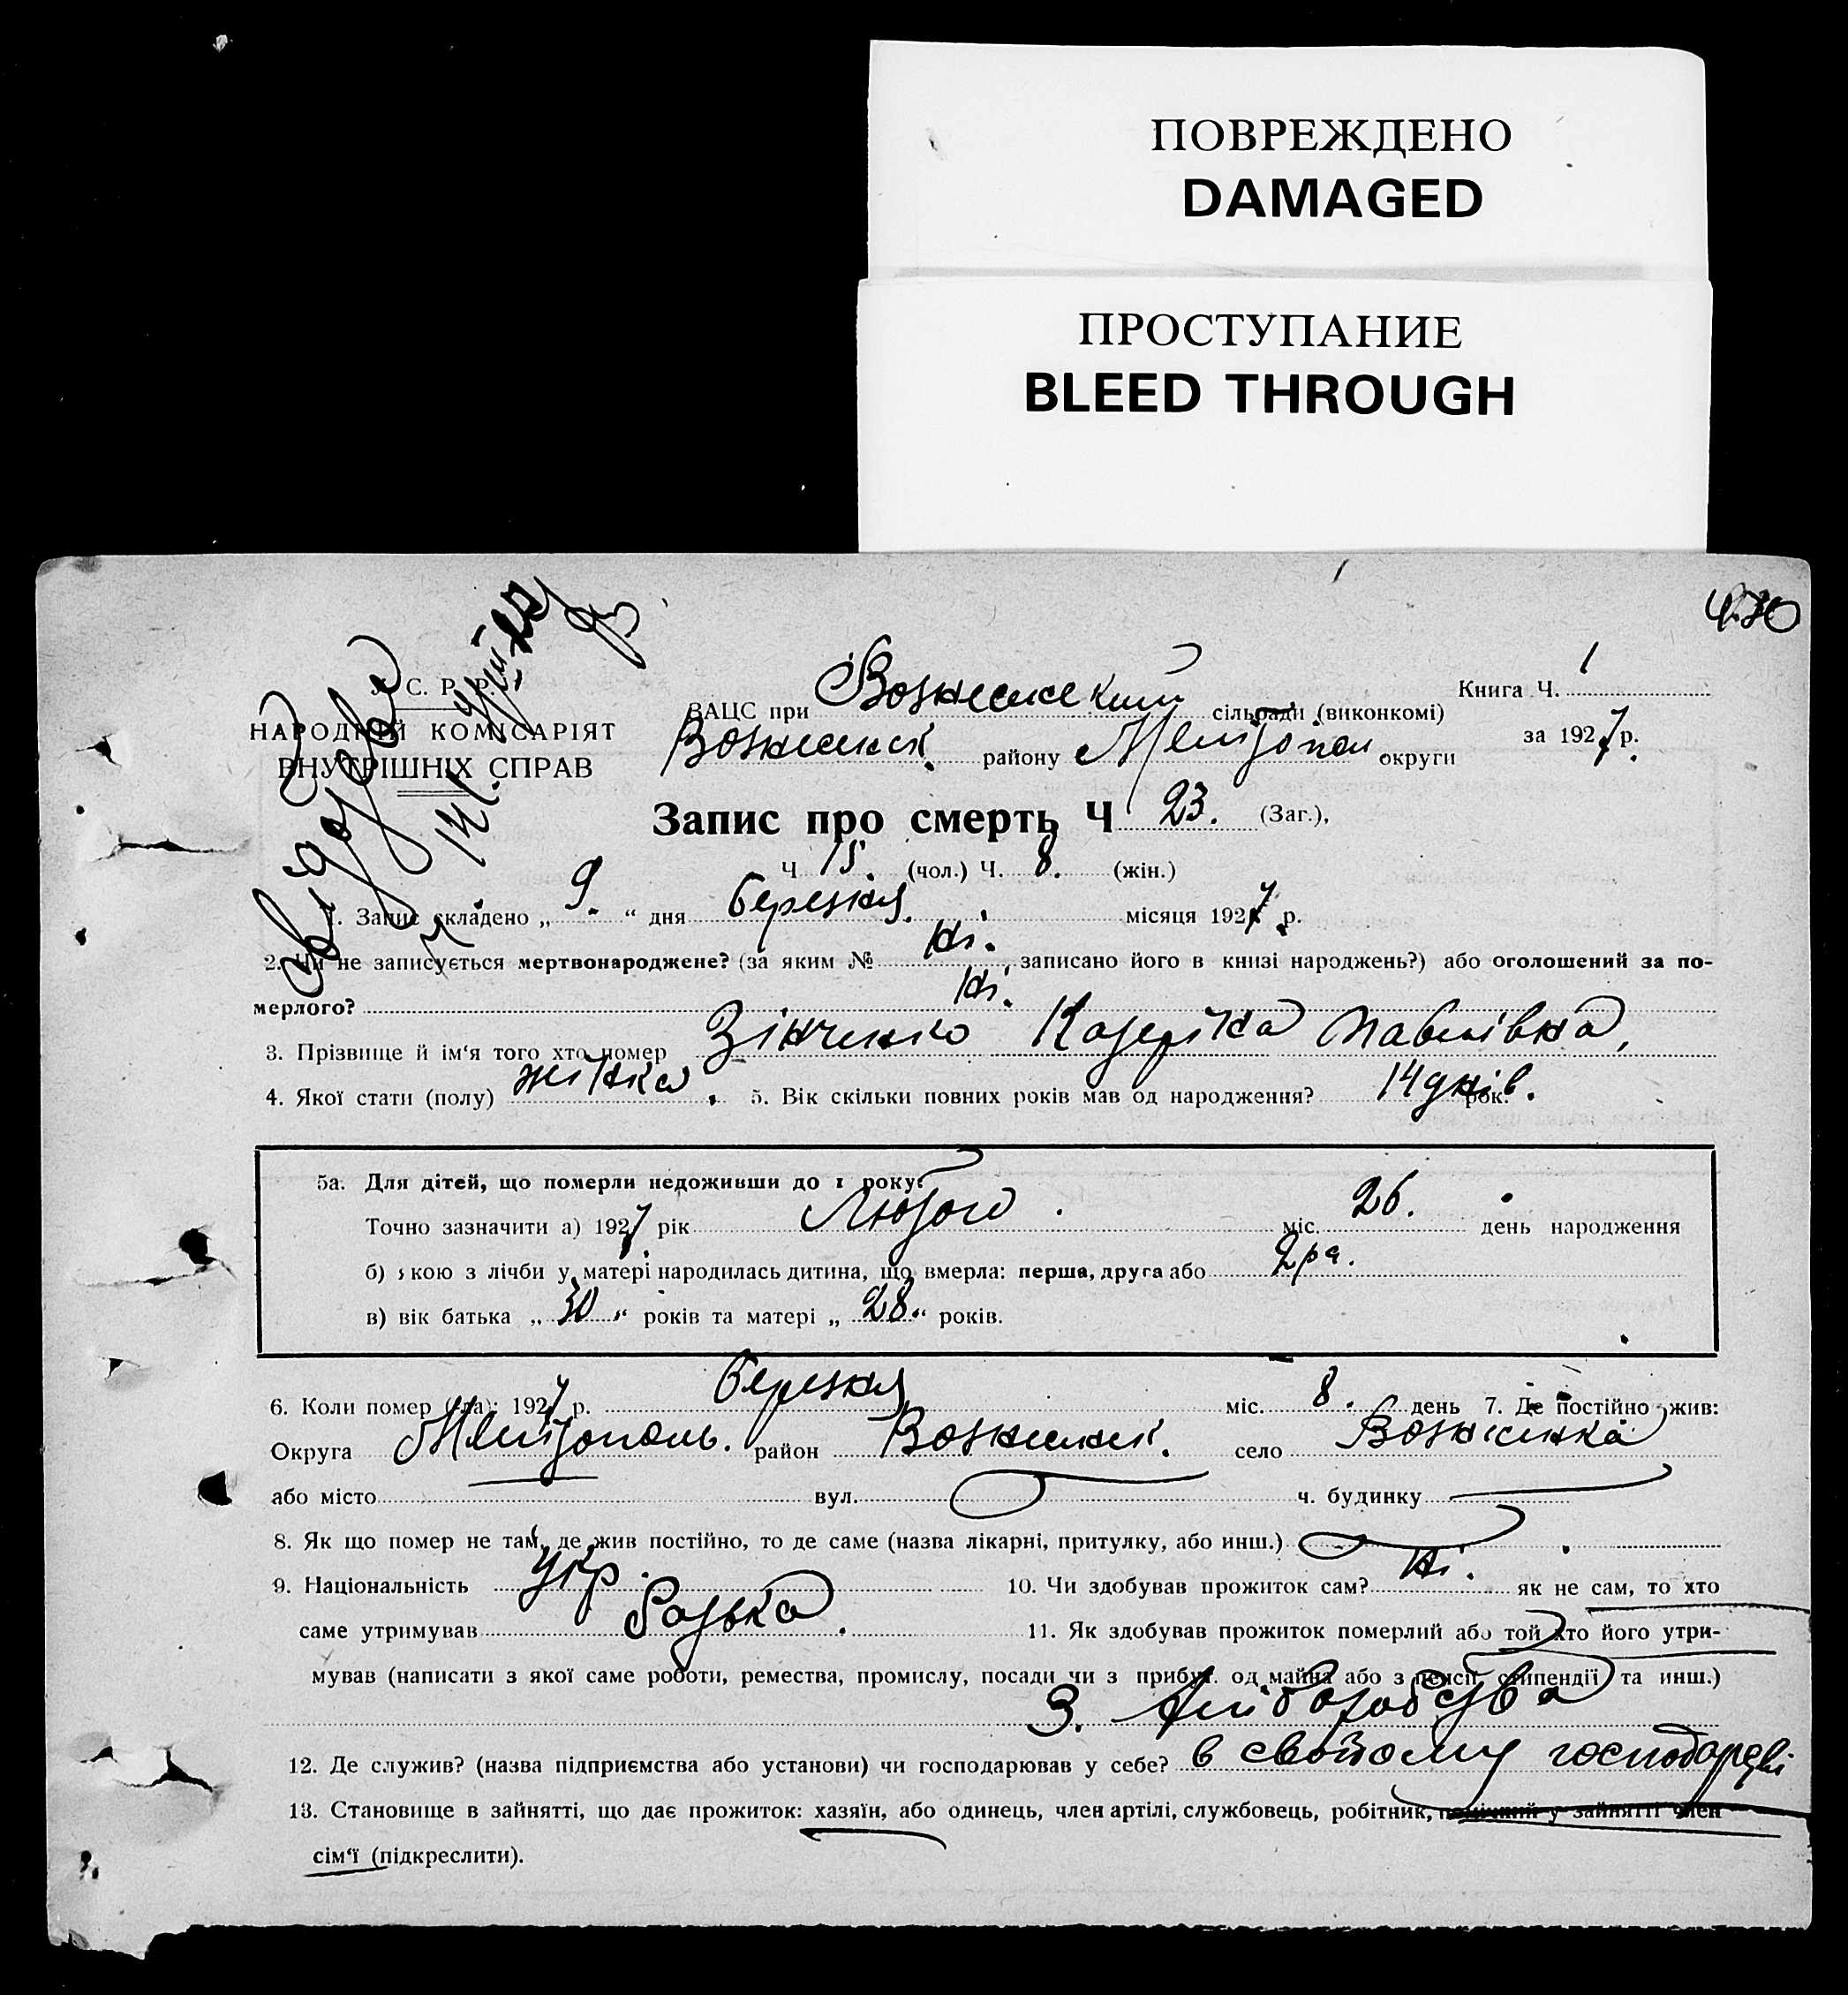 ПОВРЕЖДЕНО
DAMAGED
ПРОСТУПАНИЕ
BLEED THROUGH
С. Р. Р.
НАРОДНІЙ КОМІСАРІЯТ
ВНУТРІШНІХ СПРАВ
Книга Ч. 1
за 1927 р.
ВАЦС при Вознесенський сільради (виконкомі)
Вознесенськ. району Мелітопол округи
Запис про смерть Ч 23. (Заг.),
Ч 15. (чол.) Ч. 8. (жін.)
1. Запис складено „ 9. “ дня березня. місяця 1927 р.
2. Чи не записується мертвонароджене? (за яким № ні. записано його в книзі народжень?) або оголошений за по-
мерлого? ні.
3. Прізвище й ім'я того хто помер Зінченко Катеріна Павлівна,
4. Якої стати (полу) жінка. 5. Вік скільки повних років мав од народження? 14 днів. рок.
5а. Для дітей, що померли недоживши до 1 року:
Точно зазначити а) 1927 рік Лютого. міс. 26. день народження
б) якою з лічби у матері народилась дитина, що вмерла: перша, друга або 2ра.
в) вік батька „ 30 “ років та матері „ 28 “ років.
6. Коли помер (ла): 1927 р. березня міс. 8. день 7. Де постійно жив:
Округа Мелітополь. район Вознесенськ. село Вознесенка
або місто вул. ч. будинку
8. Як що помер не там, де жив постійно, то де саме (назва лікарні, притулку, або инш.)
9. Національність Укр. 10. Чи здобував прожиток сам? ні. як не сам, то хто
саме утримував батька. 11. Як здобував прожиток померлий або той хто його утри-
мував (написати з якої саме роботи, ремества, промислу, посади чи з прибут. од майна або з пенсії, стипендії та инш.)
З. хліборобства
12. Де служив? (назва підприємства або установи) чи господарював у себе? в своїому господарстві
13. Становище в зайнятті, що дає прожиток: хазяїн, або одинець, член артілі, службовець, робітник, помічний у зайнятті член
сім'ї (підкреслити).